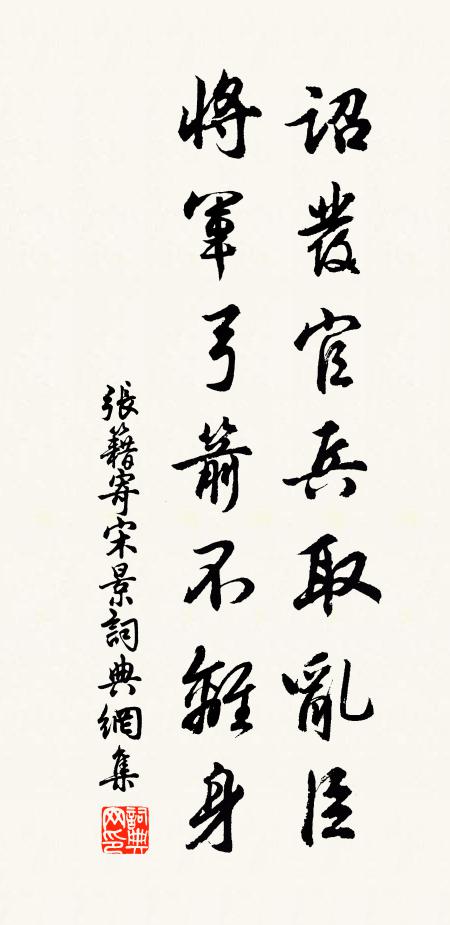 詔發官兵取亂臣
將軍弓箭不離身
張籍寄宋景詞典網集
詞典网印